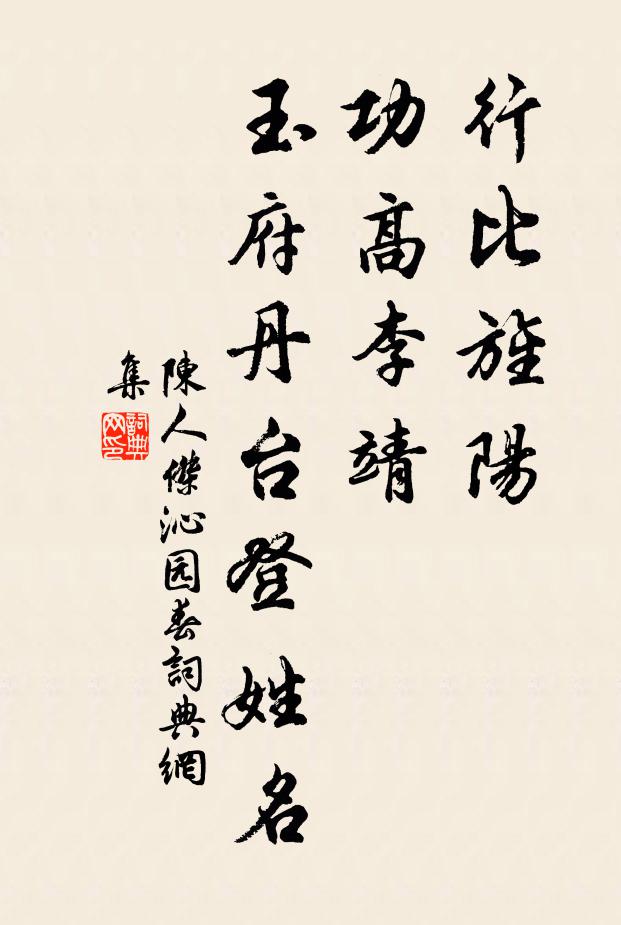 行比旌陽
功高李靖
玉府丹台登姓名
陳人傑沁园春詞典網
集
詞典
网印